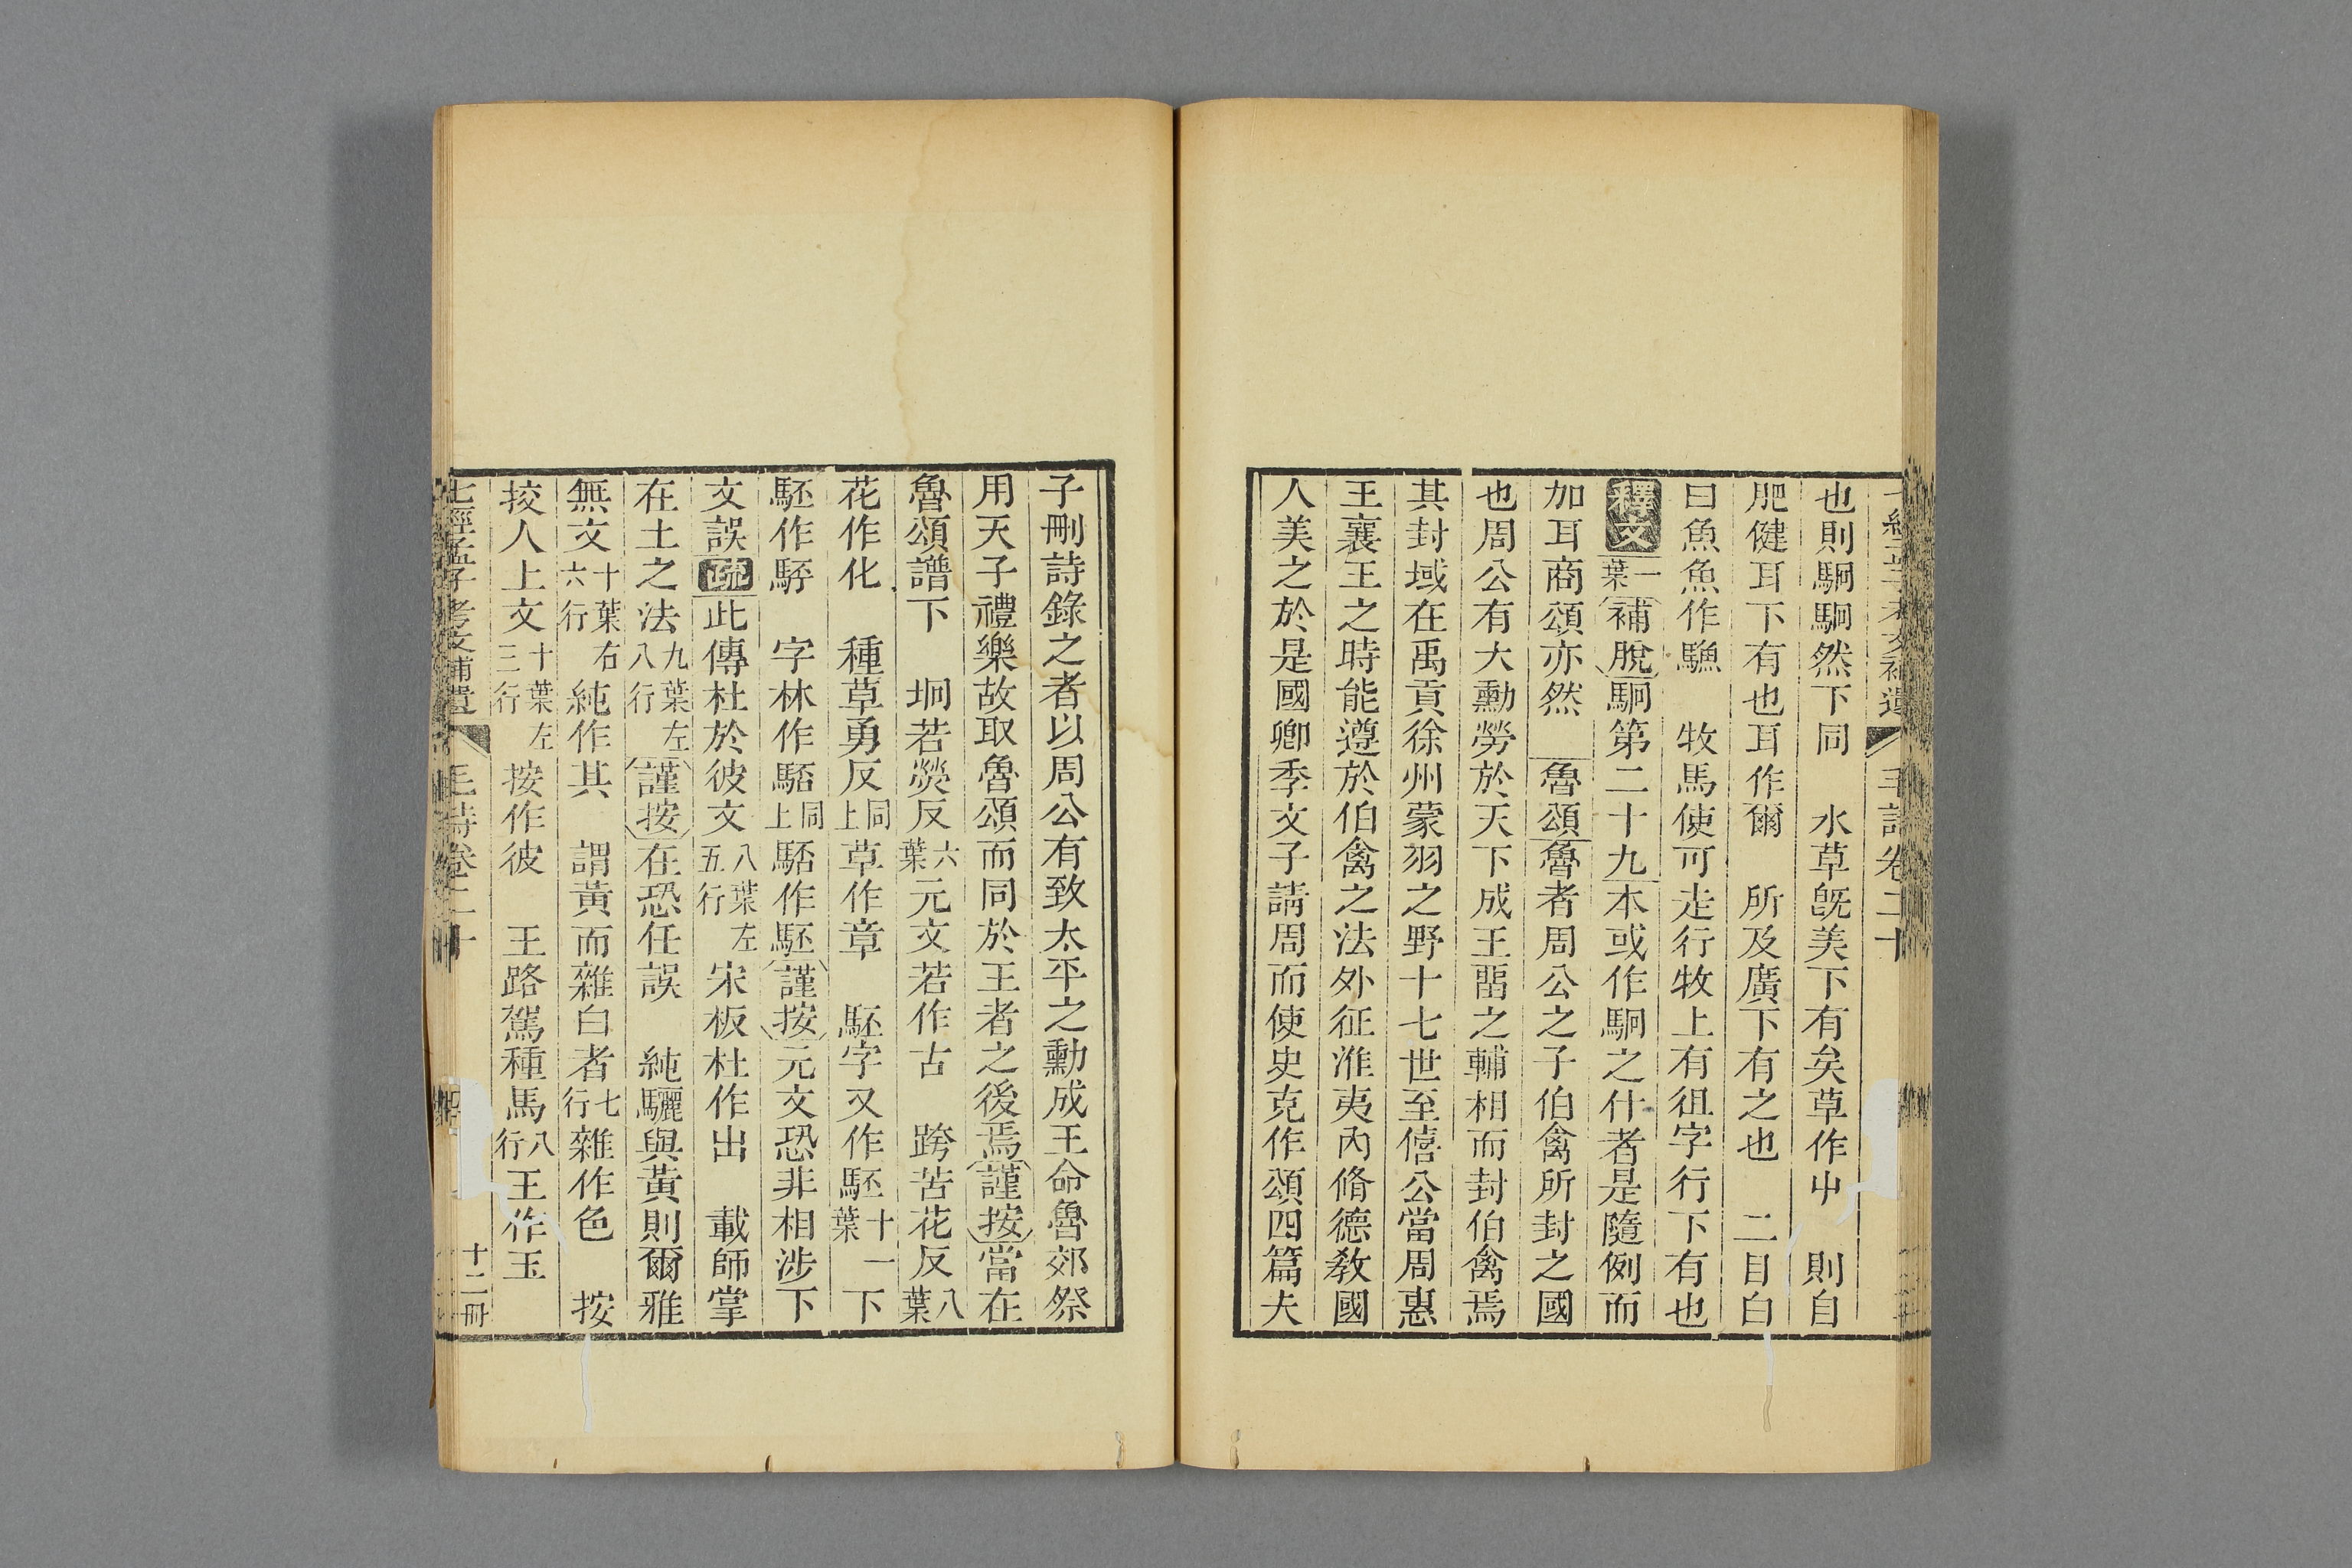 也則駉駉然下同　水草旣美下有矣草作屮　則自
肥健耳下有也耳作爾　所及廣下有之也　二目白
曰魚魚作䲣　牧馬使可走行牧上有徂字行下有也
釋文一葉補脫駉第二十九本或作駉之什者是隨例而
加耳商頌亦然　魯頌魯者周公之子伯禽所封之國
也周公有大勳勞於天下成王畱之輔相而封伯禽焉
其封域在禹貢徐州蒙羽之野十七世至僖公當周惠
王襄王之時能遵於伯禽之法外征淮夷內脩德敎國
人美之於是國卿季文子請周而使史克作頌四篇夫
子刪詩錄之者以周公有致太平之勳成王命魯郊祭
用天子禮樂故取魯頌而同於王者之後焉謹按當在
魯頌譜下　坰若熒反六葉元文若作古　跨苦花反八葉
花作化　種草勇反同上草作章　駓字又作駓十一葉下
駓作䮆　字林作䮆同上䮆作駓謹按元文恐非相涉下
文誤疏此傳杜於彼文八葉左五行宋板杜作出　載師掌
在土之法九葉左八行謹按在恐任誤　純驪與黃則爾雅
無文十葉右六行純作其　謂黃而雜白者七行雜作色　按
挍人上文十葉左三行按作彼　王路駕種馬八行王作玉
七經孟子考文補遺　毛詩卷二十　十二冊